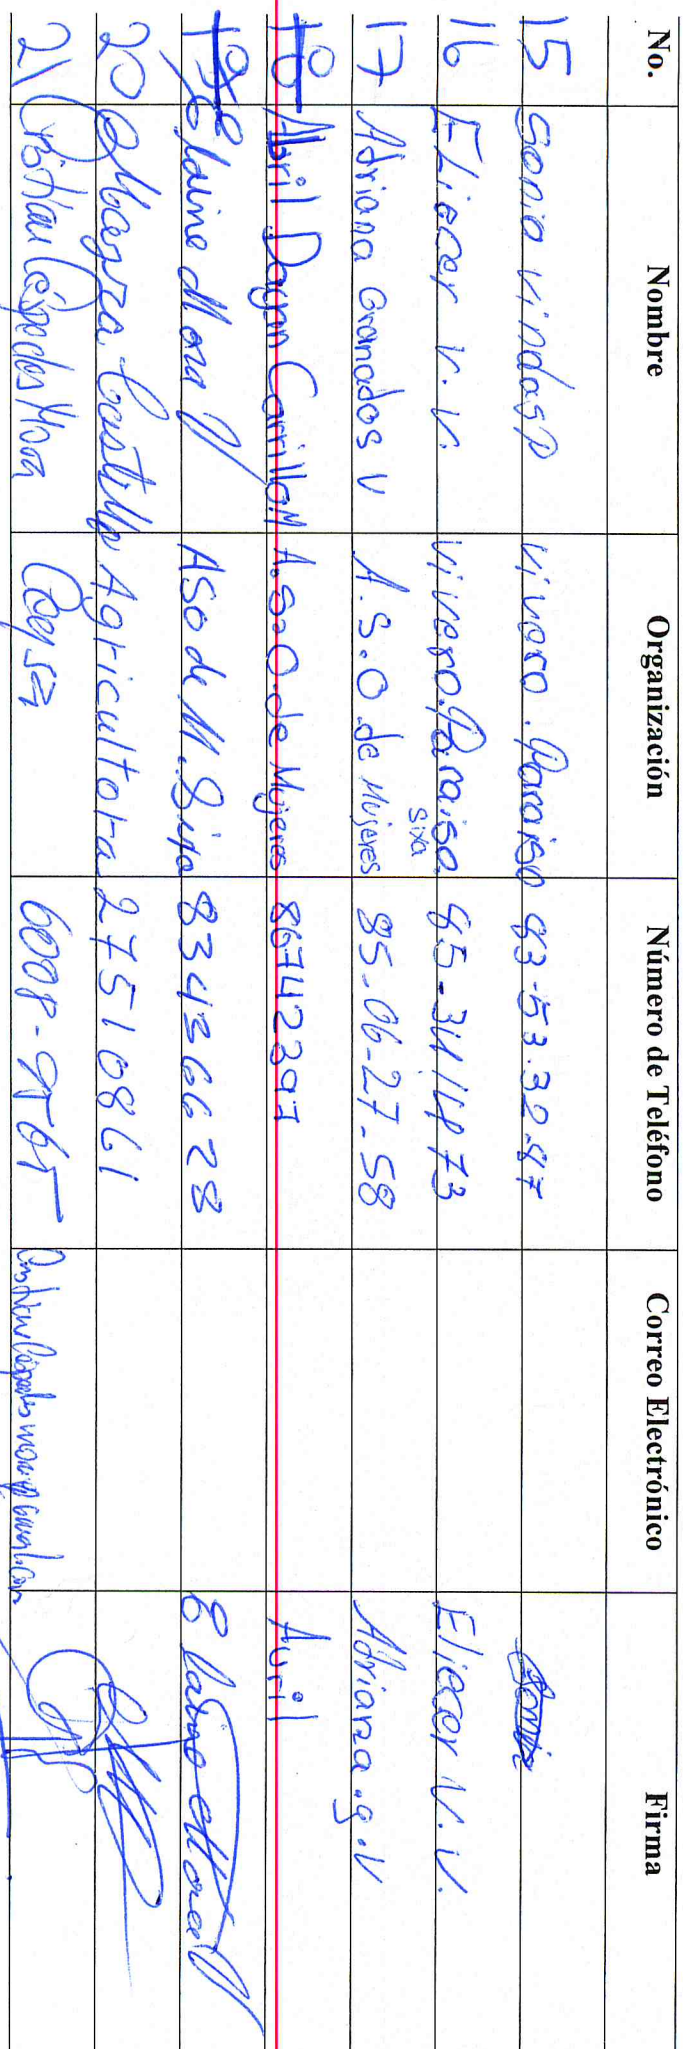 No. Nombre Organización Número de Teléfono Correo Electrónico Firma
15 Sonia Vindas P Vivero. Paraiso 83-53.32.87
16 Eliecer V. V. Vivero. Paraiso. Sixa Eliecer V. V.
17 Adriana Granados V A.S.O de Mujeres 85-06-27-58 Adriana.g.V
18 Abril Dayan Carrillo M A.S.O de Mujeres 86742397 Avril
19 Elaine Mora V Aso de M. Sixa 83436628 Elaine Mora V
20 Castillo Agricultora 27510861
21 Cristian Céspedes Mora 6008-9565